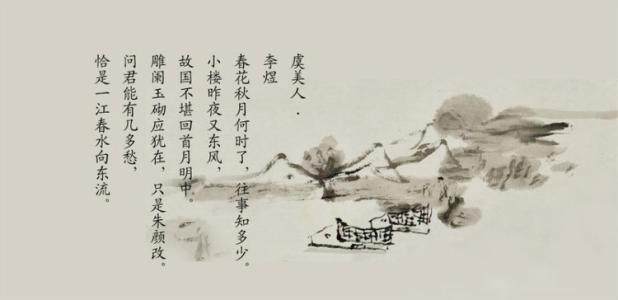 虞美人·
李煜
春花秋月何时了，往事知多少。
小楼昨夜又东风，
故国不堪回首月明中。
雕阑玉砌应犹在，只是朱颜改。
问君能有几多愁，
恰是一江春水向东流。